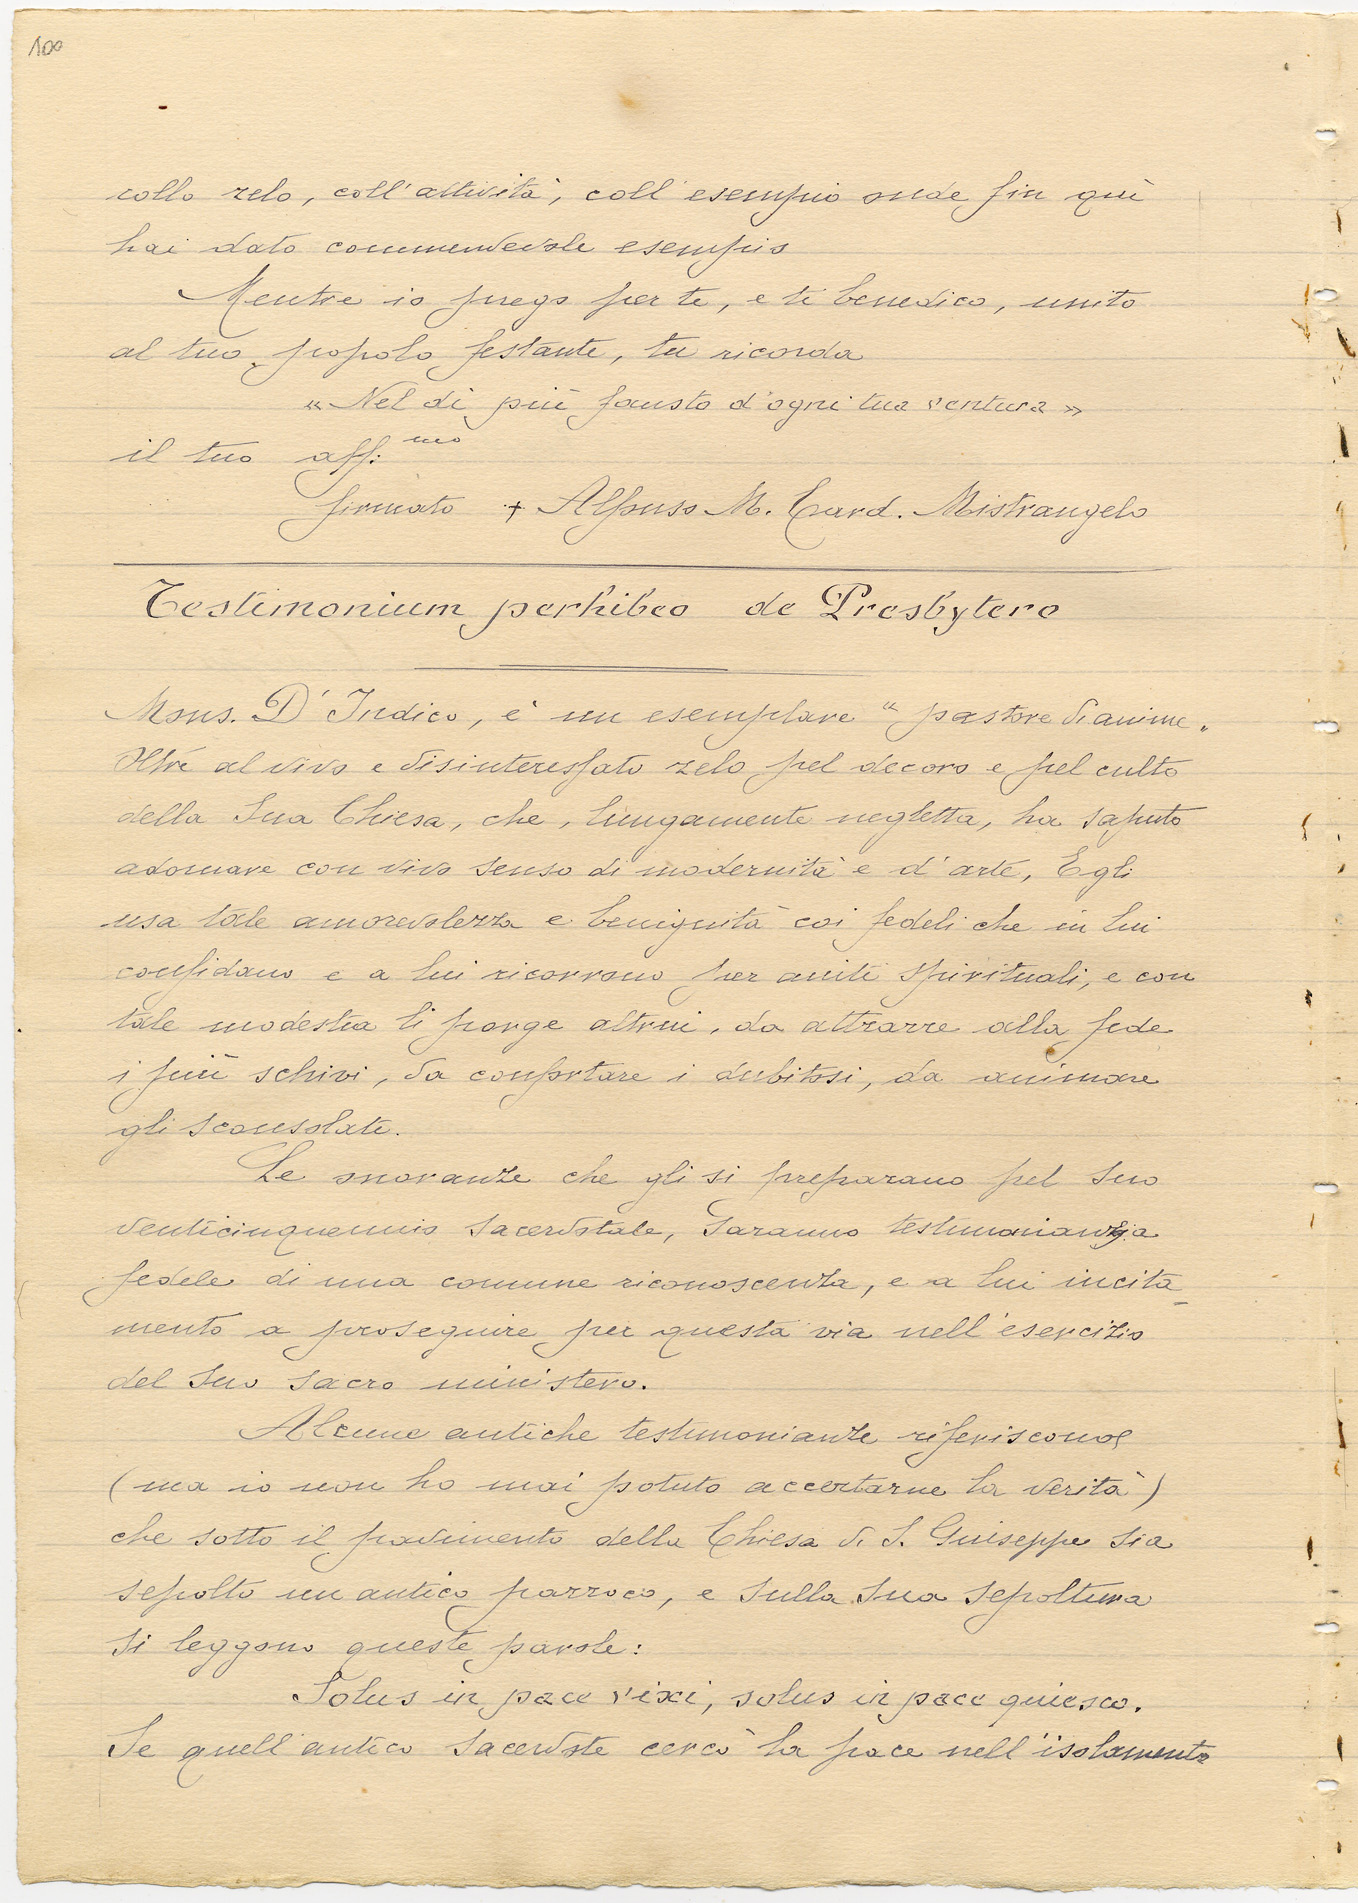 100
collo zelo, coll'attività, coll'esempio onde fin quì
hai dato commendevole esempio
Mentre io prego per te, e ti benedico, unito
al tuo popolo festante, tu ricorda
« Nel dì più fausto d'ogni tua ventura »
il tuo aff: mo
firmato + Alfonso M. Card. Mistrangelo
Testimonium perhibeo de Presbytero
Mons. D'Indico, è un esemplare " pastore di anime "
Oltre al vivo e disinteressato zelo pel decoro e pel culto
della Sua Chiesa, che, lungamente negletta, ha saputo
adornare con vivo senso di modernità e d'arte, Egli
usa tale amorevolezza e benignità coi fedeli che in lui
confidano e a lui ricorrono per aiuti spirituali, e con
tale modestia li porge altrui, da attrarre alla fede
i più schivi, da confortare i dubitosi, da animare
gli sconsolati.
Le onoranze che gli si preparano pel Suo
venticinquennio Sacerdotale, Saranno testimonianza
fedele di una comune riconoscenza, e a lui incita-
mento a proseguire per questa via nell'esercizio
del Suo Sacro ministero.
Alcune antiche testimonianze riferiscono
(ma io non ho mai potuto accertarne la verità)
che sotto il pavimento della Chiesa di S. Giuseppe sia
sepolto un antico parroco, e sulla Sua Sepoltura
si leggono queste parole:
Solus in pace vixi, solus in pace quiesco.
Se quell'antico Sacerdote cercò la pace nell'isolamento